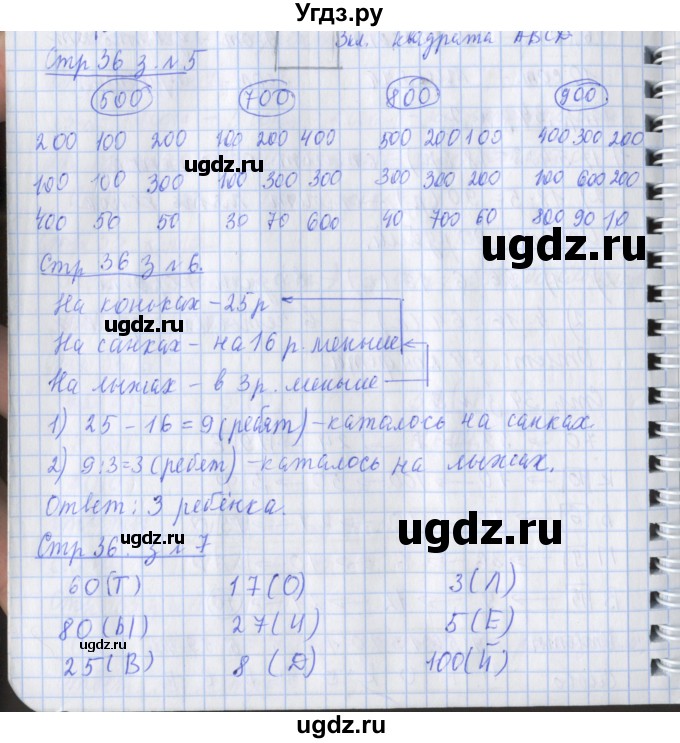 Угдз.ру
Вкл. квадрата ABCD
Стр 36 з. №5
500 700 800 900
200 100 200 100 200 400 500 200 100 400 300 200
100 100 300 100 300 300 300 300 200 100 600 200
400 50 50 30 70 600 40 700 60 800 90 10
ugdz.ru
ugdz.ru
Стр 36 з №6.
На коньках - 25 р
ugdz.ru
На санках - на 16 р. меньше
На лыжах - в 3 р. меньше
1) 25 - 16 = 9 (ребят) - каталось на санках.
ugdz.ru
2) 9:3=3 (ребят) - каталось на лыжах.
Ответ: 3 ребёнка.
ugdz.ru
ugdz.ru
Стр 36. з №7
60 (Т) 17 (О) 3 (Л)
80 (Ы) 27 (И) 5 (Е)
ugdz.ru
25 (В) 8 (Д) 100 (Й)
ugdz.ru
ugdz.ru
ugdz.ru